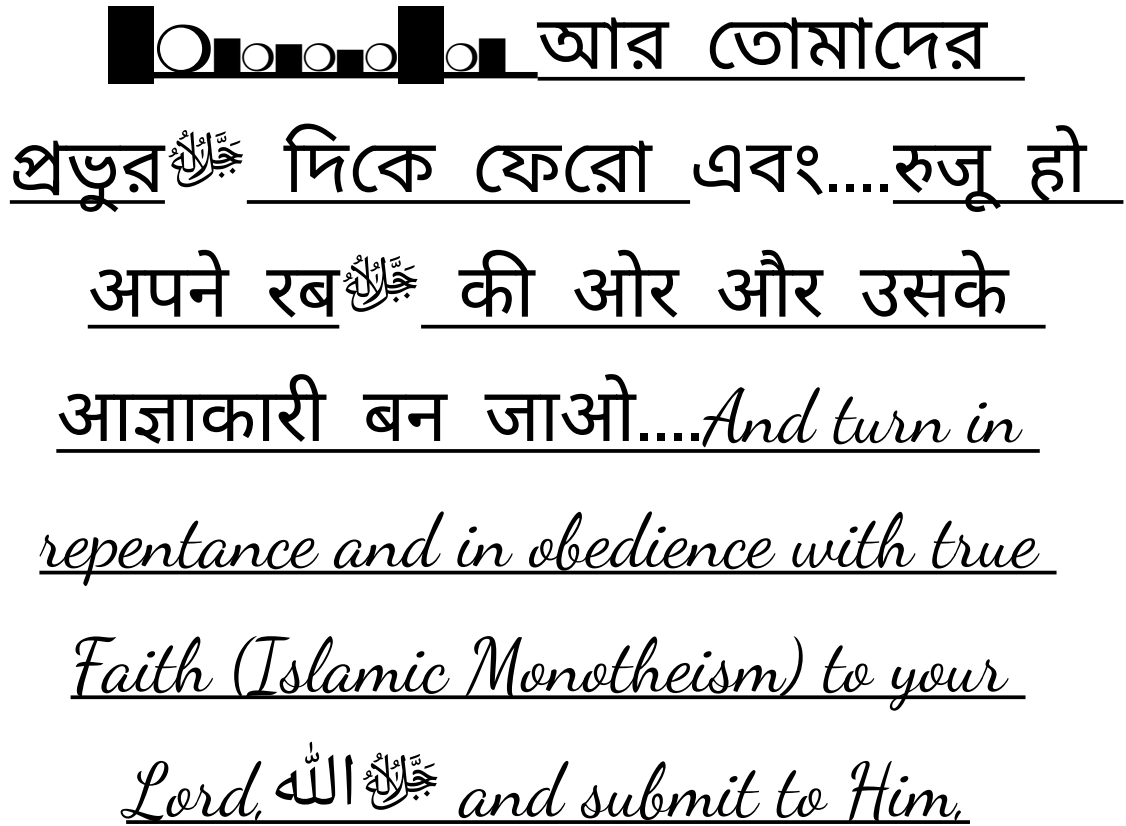 █❍▇❍▆❍▅❍█❍▇ আর তোমাদের
প্রভুরﷻ দিকে ফেরো এবং....रुजू हो
अपने रबﷻ की ओर और उसके
आज्ञाकारी बन जाओ....And turn in
repentance and in obedience with true
Faith (Islamic Monotheism) to your
Lord, اللهﷻ and submit to Him,